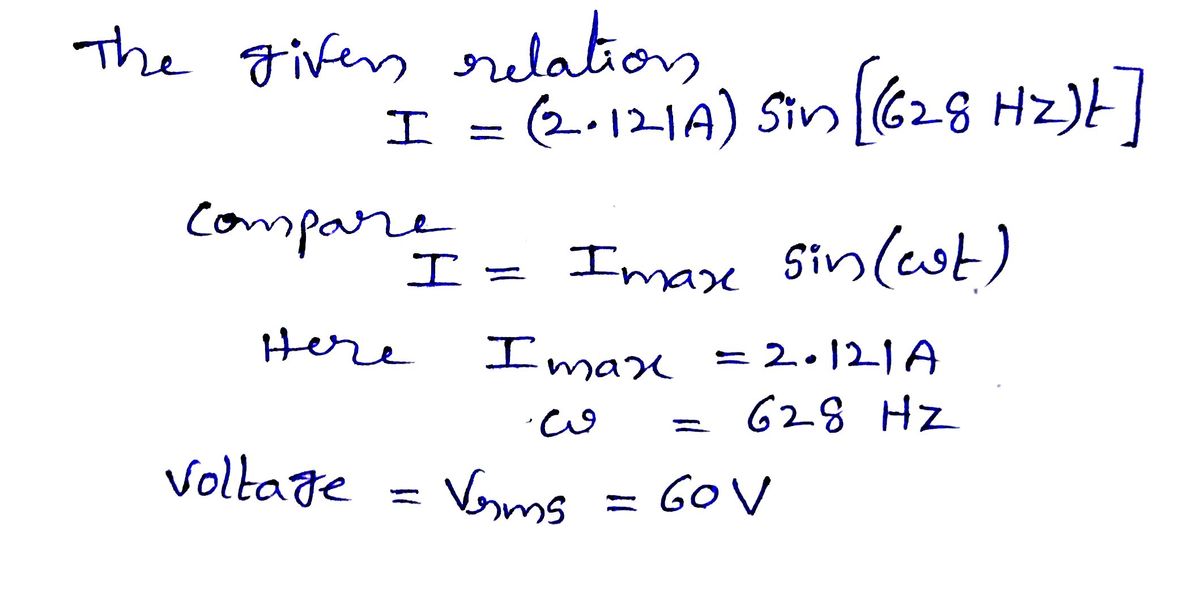 The given relation
I = (2.121A) Sin [(628 HZ)t]
Compare
I = Imax Sin(ωt)
Here Imax = 2.121A
ω = 628 HZ
Voltage = Vrms = 60V